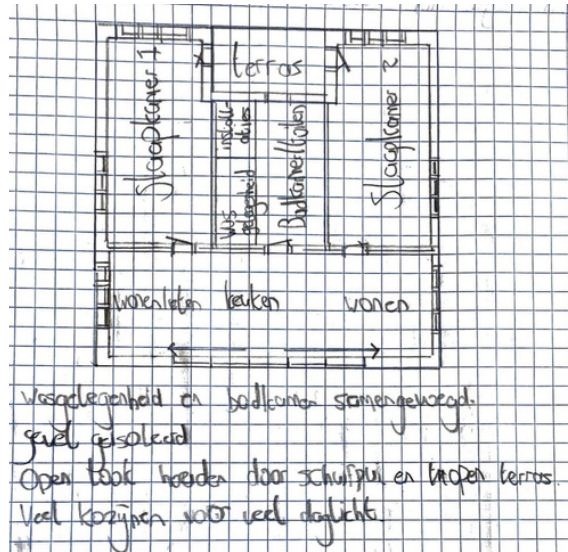 terras
Slaapkamer 1
install-
aties
was
gelegenheid
Badkamer/toilet
Slaapkamer 2
wonen/eten keuken wonen
wasgelegenheid en badkamer samengevoegd.
gevel geïsoleerd
Open look houden door schuifpui en open terras.
Veel kozijnen voor veel daglicht.